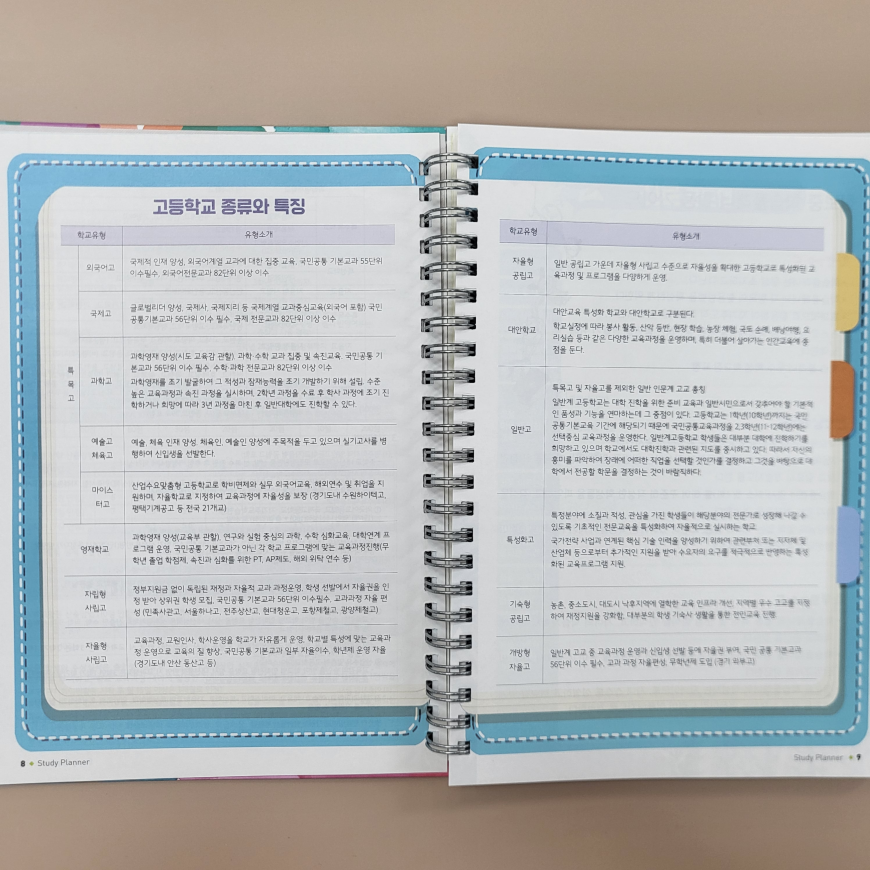 고등학교 종류와 특징
학교유형 유형소개
특목고
외국어고
국제적 인재 양성, 외국어계열 교과에 대한 집중 교육, 국민공통 기본교과 55단위
이수필수, 외국어전문교과 82단위 이상 이수
국제고
글로벌리더 양성, 국제사, 국제지리 등 국제계열 교과중심교육(외국어 포함) 국민
공통기본교과 56단위 이수 필수, 국제 전문교과 82단위 이상 이수
과학고
과학영재 양성(시도 교육감 관할). 과학·수학 교과 집중 및 속진교육, 국민공통 기
본교과 56단위 이수 필수, 수학·과학 전문교과 82단위 이상 이수
과학영재를 조기 발굴하여 그 적성과 잠재능력을 조기 개발하기 위해 설립. 수준
높은 교육과정과 속진 과정을 실시하며, 2학년 과정을 수료 후 학사 과정에 조기 진
학하거나 희망에 따라 3년 과정을 마친 후 일반대학에도 진학할 수 있다.
예술고
체육고
예술, 체육 인재 양성. 체육인, 예술인 양성에 주목적을 두고 있으며 실기고사를 병
행하여 신입생을 선발한다.
마이스
터고
산업수요맞춤형 고등학교로 학비면제와 실무 외국어교육, 해외연수 및 취업을 지
원하며, 자율학교로 지정하여 교육과정에 자율성을 보장 (경기도내 수원하이텍고,
평택기계공고 등 전국 21개교)
영재학교
과학영재 양성(교육부 관할). 연구와 실험 중심의 과학, 수학 심화교육, 대학연계 프
로그램 운영, 국민공통 기본교과가 아닌 각 학교 프로그램에 맞는 교육과정진행(무
학년 졸업 학점제, 속진과 심화를 위한 PT, AP제도, 해외 위탁 연수 등)
자립형
사립고
정부지원금 없이 독립된 재정과 자율적 교과 과정운영, 학생 선발에서 자율권을 인
정 받아 상위권 학생 모집, 국민공통 기본교과 56단위 이수필수, 교과과정 자율 편
성 (민족사관고, 서울하나고, 전주상산고, 현대청운고, 포항제철고, 광양제철고)
자율형
사립고
교육과정, 교원인사, 학사운영을 학교가 자유롭게 운영, 학교별 특성에 맞는 교육과
정 운영으로 교육의 질 향상, 국민공통 기본교과 일부 자율이수, 학년제 운영 자율
(경기도내 안산 동산고 등)
8 Study Planner
학교유형 유형소개
자율형
공립고
일반 공립고 가운데 자율형 사립고 수준으로 자율성을 확대한 고등학교로 특성화된 교
육과정 및 프로그램을 다양하게 운영.
대안학교
대안교육 특성화 학교와 대안학교로 구분된다.
학교실정에 따라 봉사 활동, 산악 등반, 현장 학습, 농장 체험, 국토 순례, 배낭여행, 요
리실습 등과 같은 다양한 교육과정을 운영하며, 특히 더불어 살아가는 인간교육에 중
점을 둔다.
일반고
특목고 및 자율고를 제외한 일반 인문계 고교 총칭
일반계 고등학교는 대학 진학을 위한 준비 교육과 일반시민으로서 갖추어야 할 기본적
인 품성과 기능을 연마하는데 그 중점이 있다. 고등학교는 1학년(10학년)까지는 국민
공통기본교육 기간에 해당되기 때문에 국민공통교육과정을 2,3학년(11-12학년)에는
선택중심 교육과정을 운영한다. 일반계고등학교 학생들은 대부분 대학에 진학하기를
희망하고 있으며 학교에서도 대학진학과 관련된 지도를 중시하고 있다. 따라서 자신의
흥미를 파악하여 장래에 어떠한 직업을 선택할 것인가를 결정하고 그것을 바탕으로 대
학에서 전공할 학문을 결정하는 것이 바람직하다.
특성화고
특정분야에 소질과 적성, 관심을 가진 학생들이 해당분야의 전문가로 성장해 나갈 수
있도록 기초적인 전문교육을 특성화하여 자율적으로 실시하는 학교.
국가전략 사업과 연계된 핵심 기술 인력을 양성하기 위하여 관련부처 또는 지자체 및
산업체 등으로부터 추가적인 지원을 받아 수요자의 요구를 적극적으로 반영하는 특성
화된 교육프로그램 지원.
기숙형
공립고
농촌, 중소도시, 대도시 낙후지역에 열악한 교육 인프라 개선, 지역별 우수 고교를 지정
하여 재정지원을 강화함, 대부분의 학생 기숙사 생활을 통한 전인교육 진행.
개방형
자율고
일반계 고교 중 교육과정 운영과 신입생 선발 등에 자율권 부여, 국민 공통 기본교과
56단위 이수 필수, 교과 과정 자율편성, 무학년제 도입 (경기 와부고)
Study Planner 9